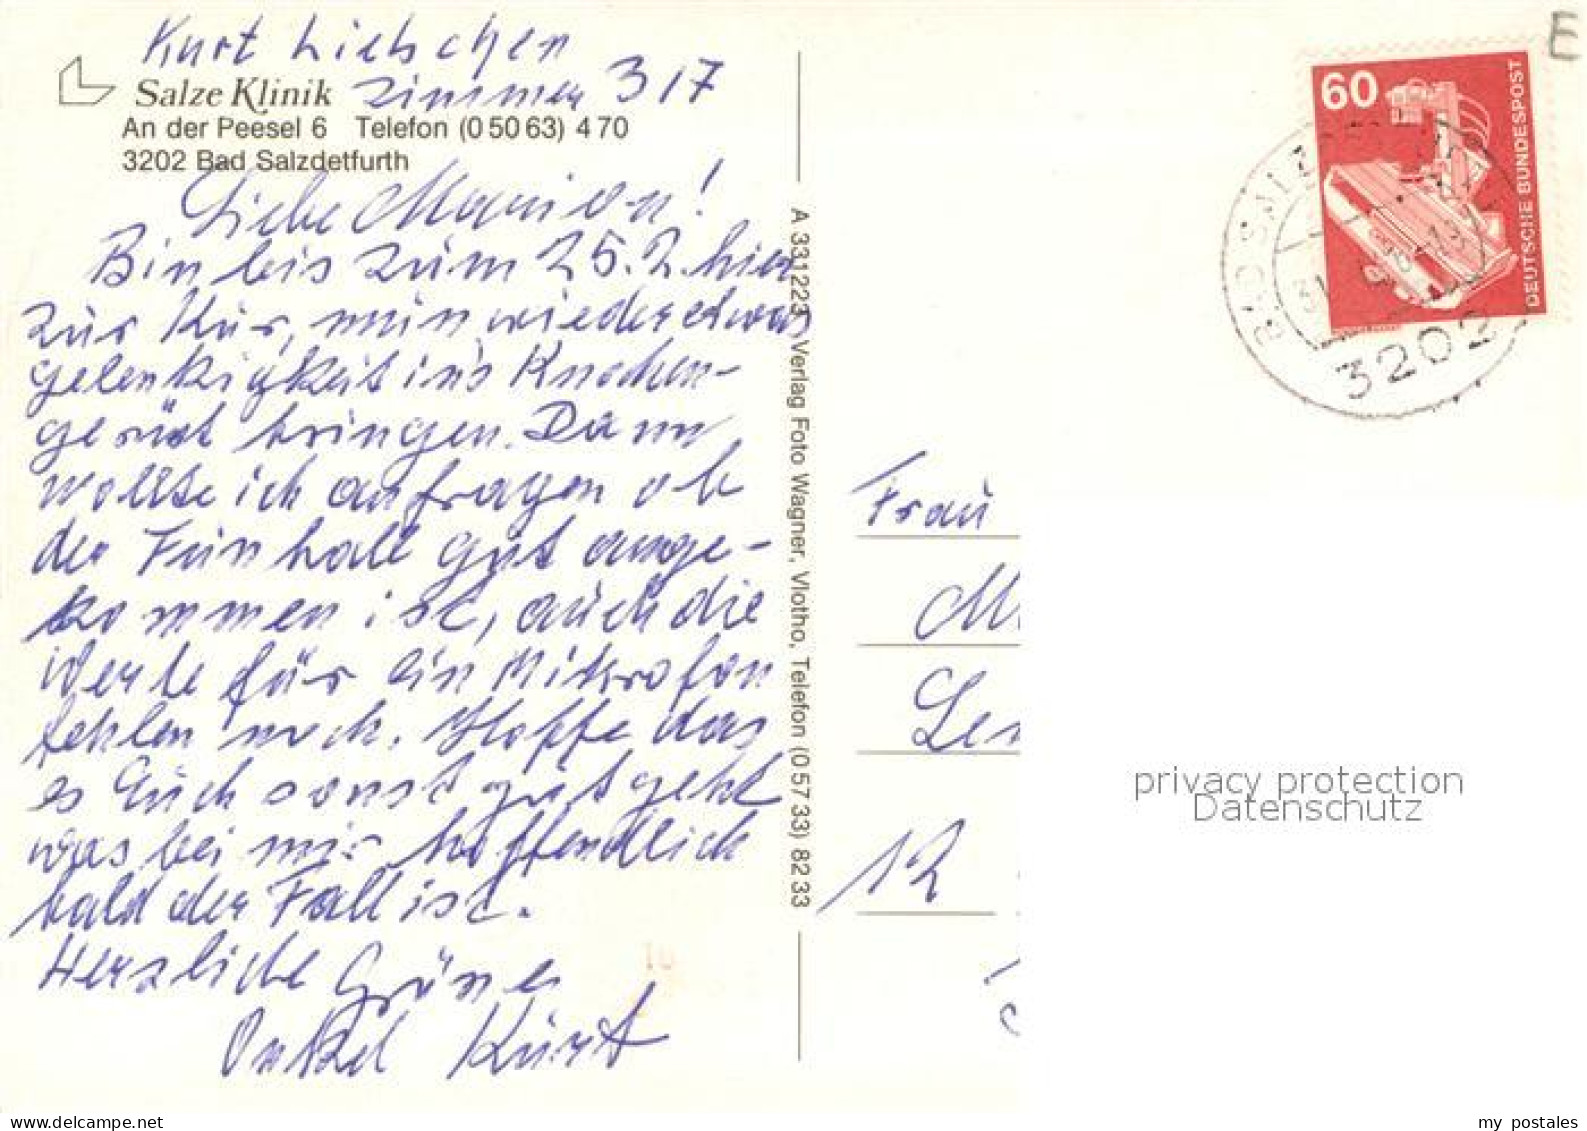 Kurt Liebschen
Salze Klinik Zimmer 317
An der Peesel 6 Telefon (0 50 63) 4 70
3202 Bad Salzdetfurth
Liebe Marion!
Bin bis zum 25.2. hier
zur Kur, muß wieder etwas
gelenkigkeit ins Knochen-
gerüst bringen. Dann
wollte ich anfragen ob
der Tuin hall gut ange-
kommen ist, auch die
Werte für ein Mikrofon
fehlen noch. Hoffe das
es Euch sonst gut geht
was bei mir hoffendlich
bald der Fall ist.
Herzliche Grüße
Onkel Kurt
A 331223 Verlag Foto Wagner, Vlotho, Telefon (0 57 33) 82 33
E
60
DEUTSCHE BUNDESPOST
3202
Frau
M
Le
12
privacy protection
Datenschutz
my postales